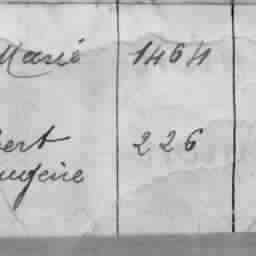 Marie 1464
bert 226
ugène